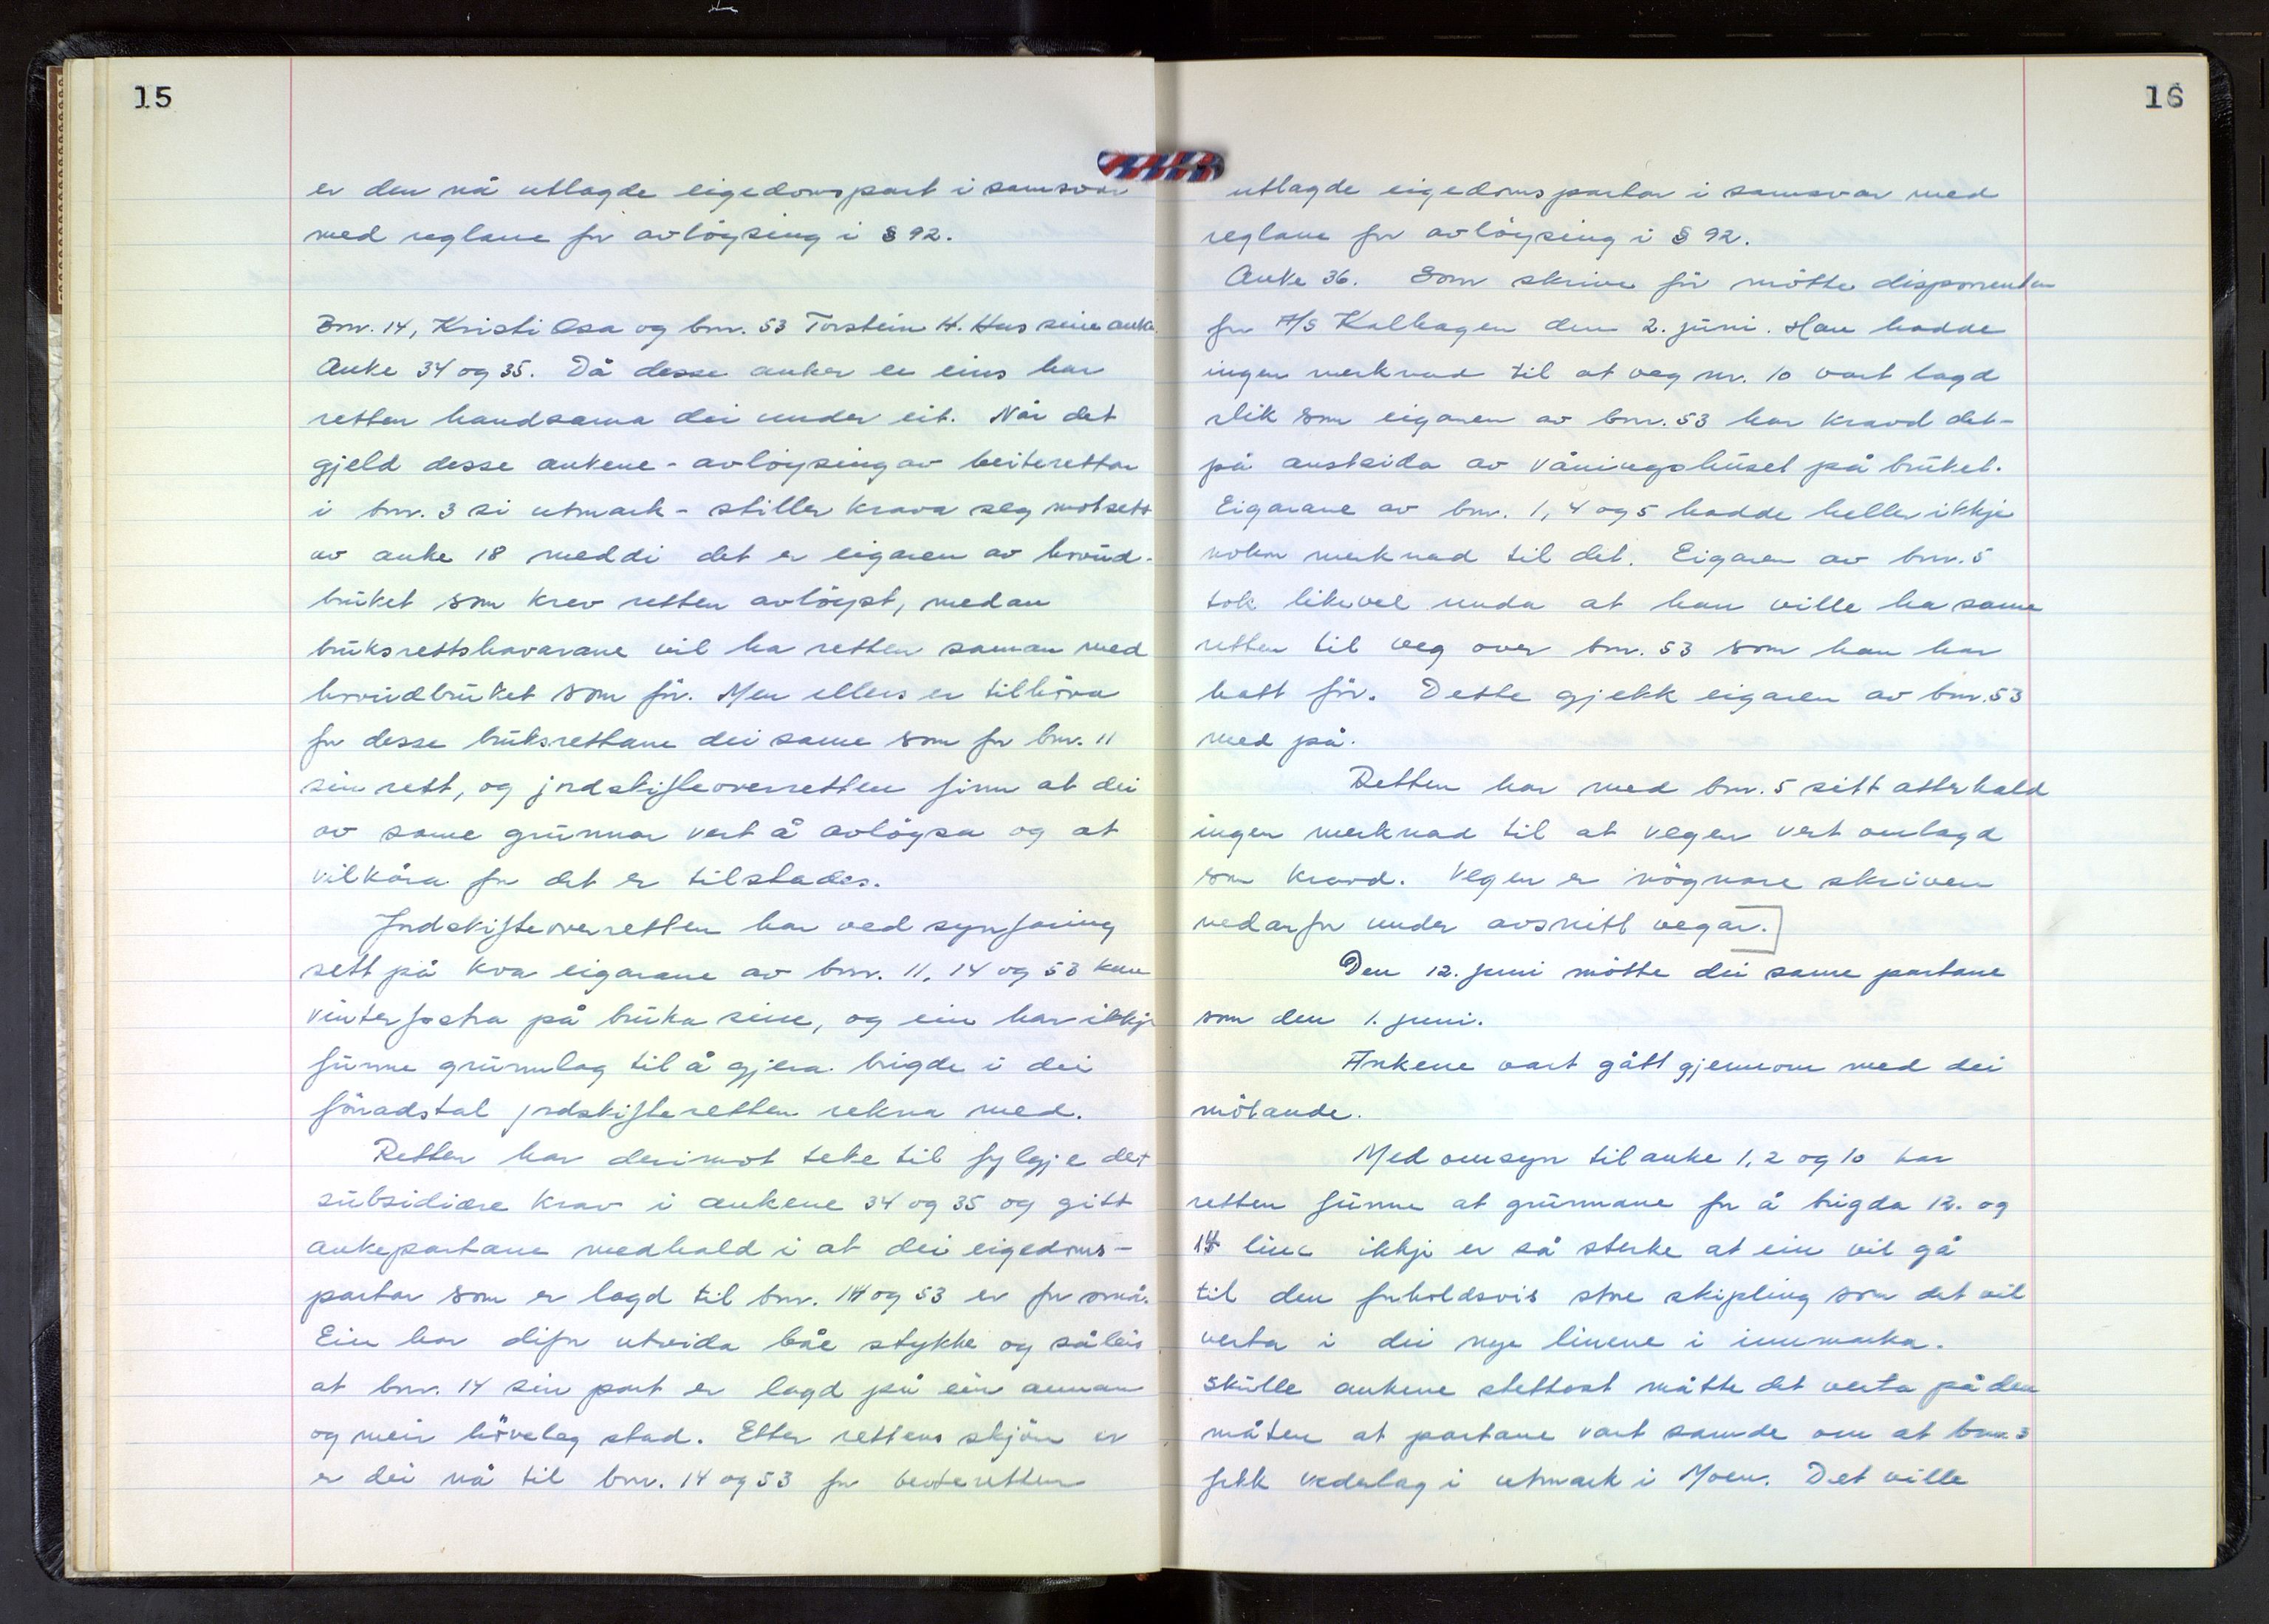 15
er den nå utlagde eigedomspart i samsvar
med reglane for avlöysing i § 92.
Bnr. 14, Kristi Osa og bnr. 53 Torstein H. Hus sine anke.
Anke 34 og 35. Då desse anker er eins har
retten handsama dei under eit. Når det
gjeld desse ankene - avlöysing av beiterettar
i bnr. 3 si utmark - stiller krava seg motsett
av anke 18 meddi det er eigaren av hovud-
bruket som krev retten avlöyst, medan
bruksrettshavarane vil ha retten saman med
hovudbruket som för. Men ellers er tilhöva
for desse bruksrettane dei same som for bnr. 11
sin rett, og jordskifteoverretten finn at dei
av same grunnar vert å avlöysa og at
vilkåra for det er tilstades.
Jordskifteoverretten har ved synfaring
sett på kva eigarane av bnr. 11, 14 og 53 kan
vinterfostra på bruka sine, og ein har ikkje
funne grunnlag til å gjera brigde i dei
fönadstal jordskifteretten rekna med.
Retten har derimot teke til fylgje det
subsidiære krav i ankene 34 og 35 og gitt
ankepartane medhald i at dei eigedoms-
partar som er lagd til bnr. 14 og 53 er for små.
Ein har difor utvida båe stykke og såleis
at bnr. 14 sin part er lagd på ein annan
og meir höveleg stad. Etter rettens skjön er
er dei nå til bnr. 14 og 53 for beiteretten
16
utlagde eigedomspartar i samsvar med
reglane for avlöysing i § 92.
Anke 36. Som skrive för mötte disponenten
for A/S Kalhagen den 2. juni. Han hadde
ingen merknad til at veg nr. 10 vart lagd
slik som eigaren av bnr. 53 har kravd det -
på austsida av våningshuset på bruket.
Eigarane av bnr. 1, 4 og 5 hadde heller ikkje
nokon merknad til det. Eigaren av bnr. 5
tok likevel unda at han ville ha same
retten til veg over bnr. 53 som han har
hatt för. Dette gjekk eigaren av bnr. 53
med på.
Retten har med bnr. 5 sitt atterhald
ingen merknad til at vegen vert omlagd
som kravd. Vegen er nögnare skriven
nedanfor under avsnitt vegar.
Den 12. juni mötte dei same partane
som den 1. juni.
Ankene vart gått gjennom med dei
mötande.
Med omsyn til anke 1, 2 og 10 har
retten funne at grunnane for å brigda 12. og
14 line ikkje er så sterke at ein vil gå
til den forholdsvis store skipling som det vil
verta i dei nye linene i innmarka.
Skulle ankene stettast måtte det verta på den
måten at partane vart samde om at bnr. 3
fekk vederlag i utmark i Moen. Det ville